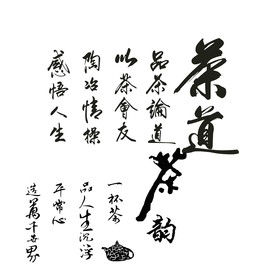 茶道
品茶論道
以茶會友
陶冶情操
感悟人生
茶韵
一杯茶
品人生沉浮
平常心
造萬千世界